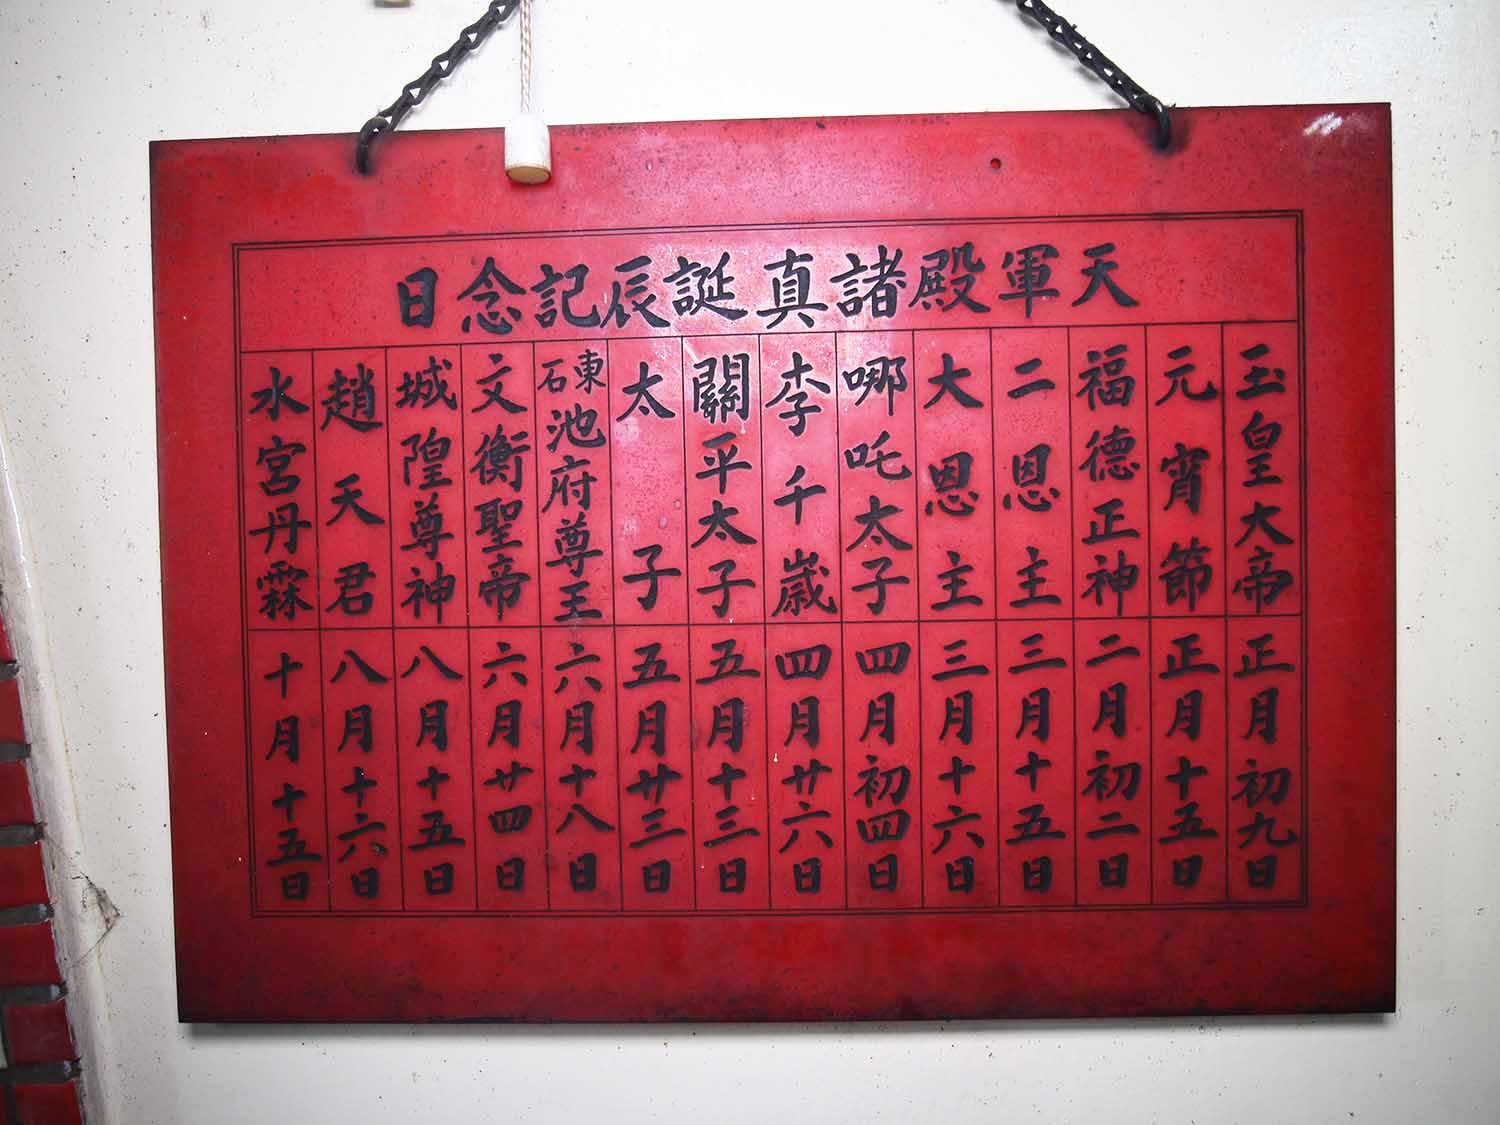 天軍殿諸真誕辰記念日
玉皇大帝 正月初九日
元宵節 正月十五日
福德正神 二月初二日
二恩主 三月十五日
大恩主 三月十六日
哪吒太子 四月初四日
李千歲 四月廿六日
關平太子 五月十三日
太子 五月廿三日
東石池府尊王 六月十八日
文衡聖帝 六月廿四日
城隍尊神 八月十五日
趙天君 八月十六日
水宮丹霖 十月十五日